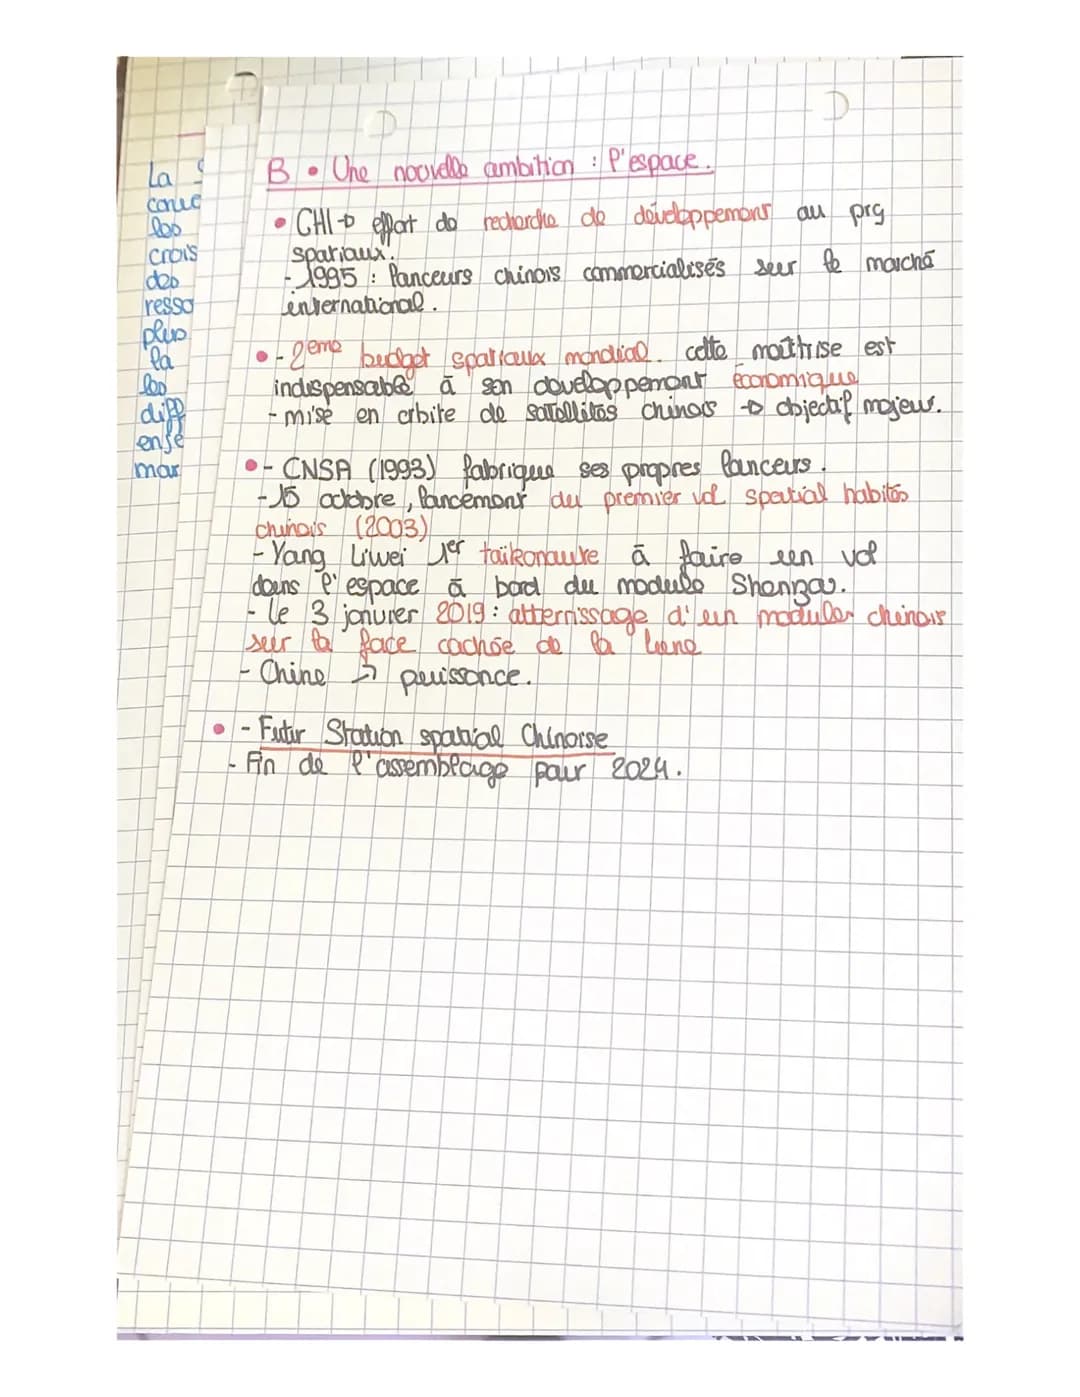 B • Une nouvelle ambition : l'espace.
• CHI→ effort de recherche de développement au prg
spatiaux.
- 1995 : lanceurs chinois commercialisés sur le marché
international.
• - 2ème budget spatiaux mondial. cette maîtrise est
indispensable à son développement économique
- mise en orbite de satellites chinois → objectif majeur.
• - CNSA (1993) fabrique ses propres lanceurs.
- 15 octobre, lancement du premier vol spatial habités
chinois (2003)
- Yang Liwei 1er taïkonaute à faire un vol
dans l'espace à bord du module Shenzou.
- le 3 janvier 2019 : atterrissage d'un module chinois
sur la face cachée de la lune
- Chine → puissance.
• - Futur Station spatial Chinoise
- Fin de l'assemblage pour 2024.
La
les
crois
des
resso
plus
la
les
diff
ense
mar